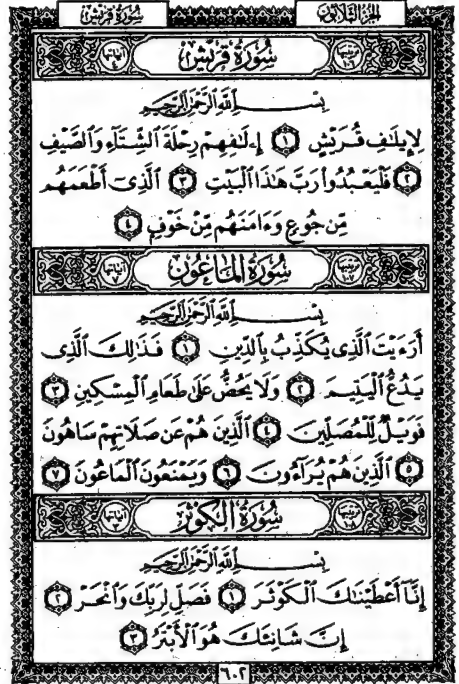 الجزء الثلاثون سورة قريش
سُورَةُ قُرَيْش
بِسْمِ اللَّهِ الرَّحْمَٰنِ الرَّحِيمِ
لِإِيلَٰفِ قُرَيْشٍ ١ إِۦلَٰفِهِمْ رِحْلَةَ ٱلشِّتَآءِ وَٱلصَّيْفِ
٢ فَلْيَعْبُدُوا۟ رَبَّ هَٰذَا ٱلْبَيْتِ ٣ ٱلَّذِىٓ أَطْعَمَهُم
مِّن جُوعٍ وَءَامَنَهُم مِّنْ خَوْفٍ ٤
سُورَةُ المَاعُون
بِسْمِ اللَّهِ الرَّحْمَٰنِ الرَّحِيمِ
أَرَءَيْتَ ٱلَّذِى يُكَذِّبُ بِٱلدِّينِ ١ فَذَٰلِكَ ٱلَّذِى
يَدُعُّ ٱلْيَتِيمَ ٢ وَلَا يَحُضُّ عَلَىٰ طَعَامِ ٱلْمِسْكِينِ ٣
فَوَيْلٌ لِّلْمُصَلِّينَ ٤ ٱلَّذِينَ هُمْ عَن صَلَاتِهِمْ سَاهُونَ
٥ ٱلَّذِينَ هُمْ يُرَآءُونَ ٦ وَيَمْنَعُونَ ٱلْمَاعُونَ ٧
سُورَةُ الكَوْثَر
بِسْمِ اللَّهِ الرَّحْمَٰنِ الرَّحِيمِ
إِنَّآ أَعْطَيْنَٰكَ ٱلْكَوْثَرَ ١ فَصَلِّ لِرَبِّكَ وَٱنْحَرْ ٢
إِنَّ شَانِئَكَ هُوَ ٱلْأَبْتَرُ ٣
٦٠٢